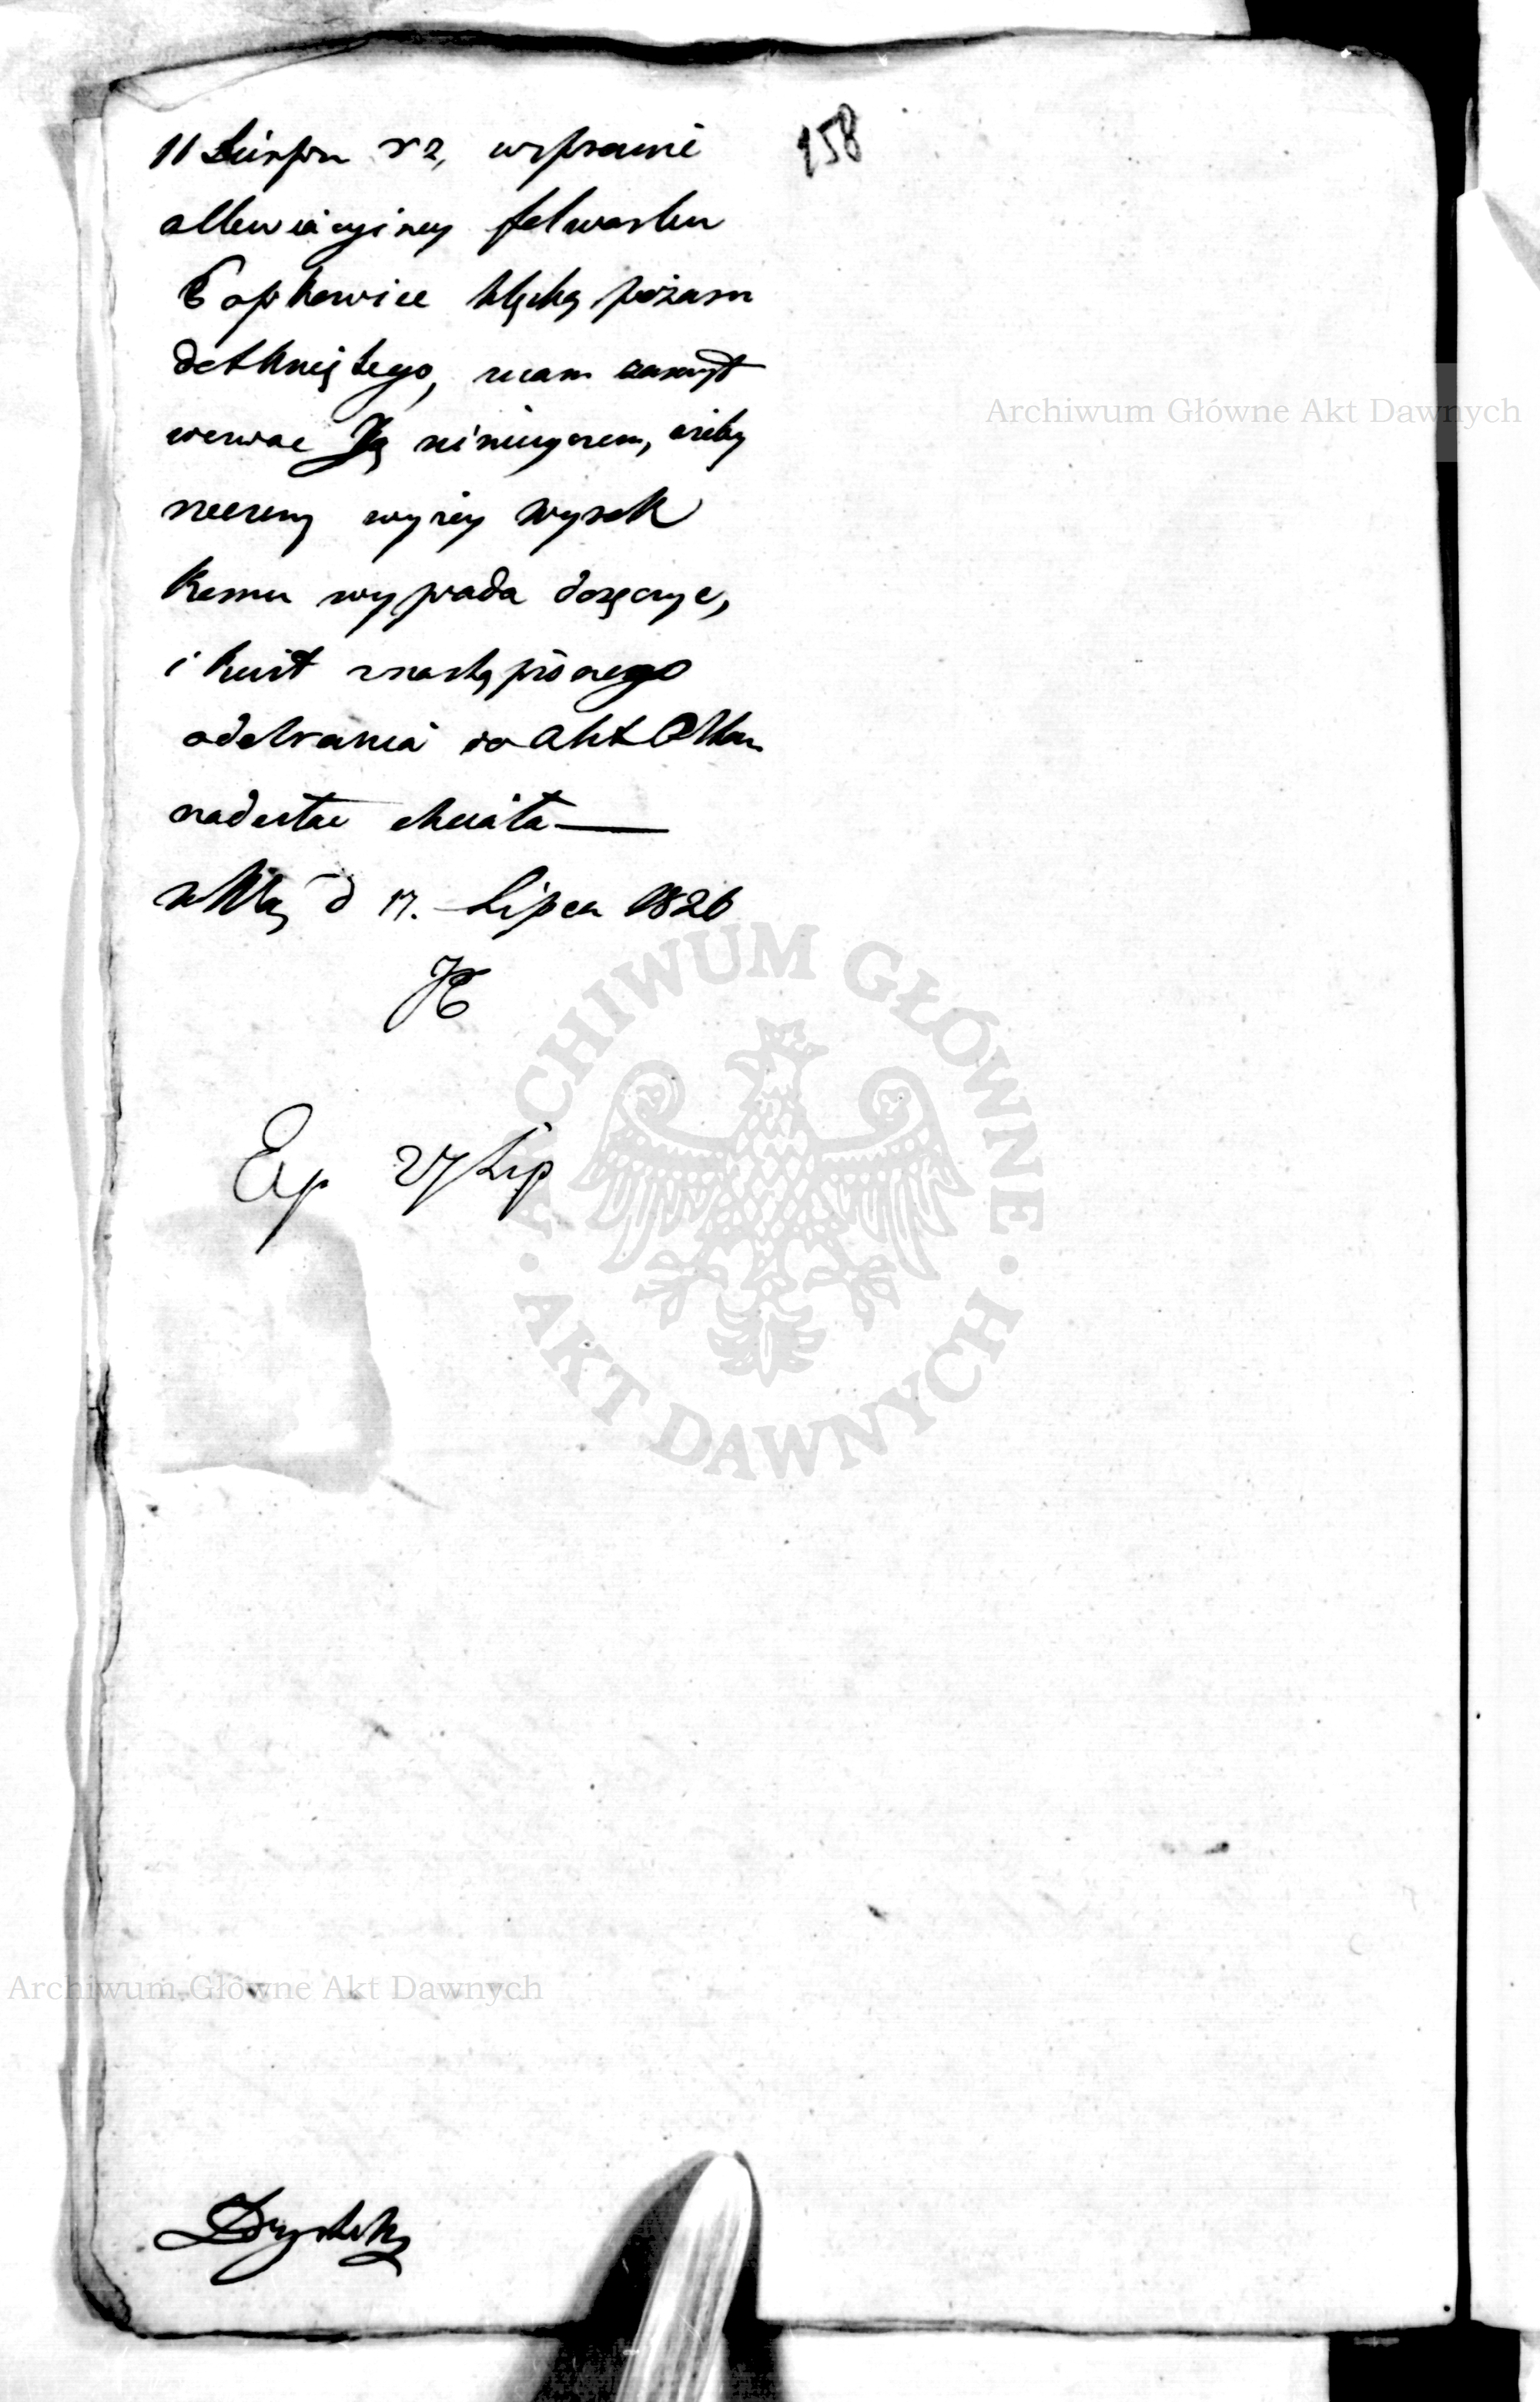 158
11 Sierpnia r z, w sprawie
allewiacyiney folwarku
Popkowice klęską pożaru
dotkniętego, mam zaszczyt
wezwać Ją ninieyszem, ażeby
rzeczony wyżey wyrok
komu wypada doręczyć,
i kwit z nastąpionego
odebrania do Akt
nadesłać chciała
d 17. Lipca 1826
Ex 27 Lip
Archiwum Główne Akt Dawnych
ARCHIWUM GŁÓWNE
AKT DAWNYCH
Archiwum Główne Akt Dawnych